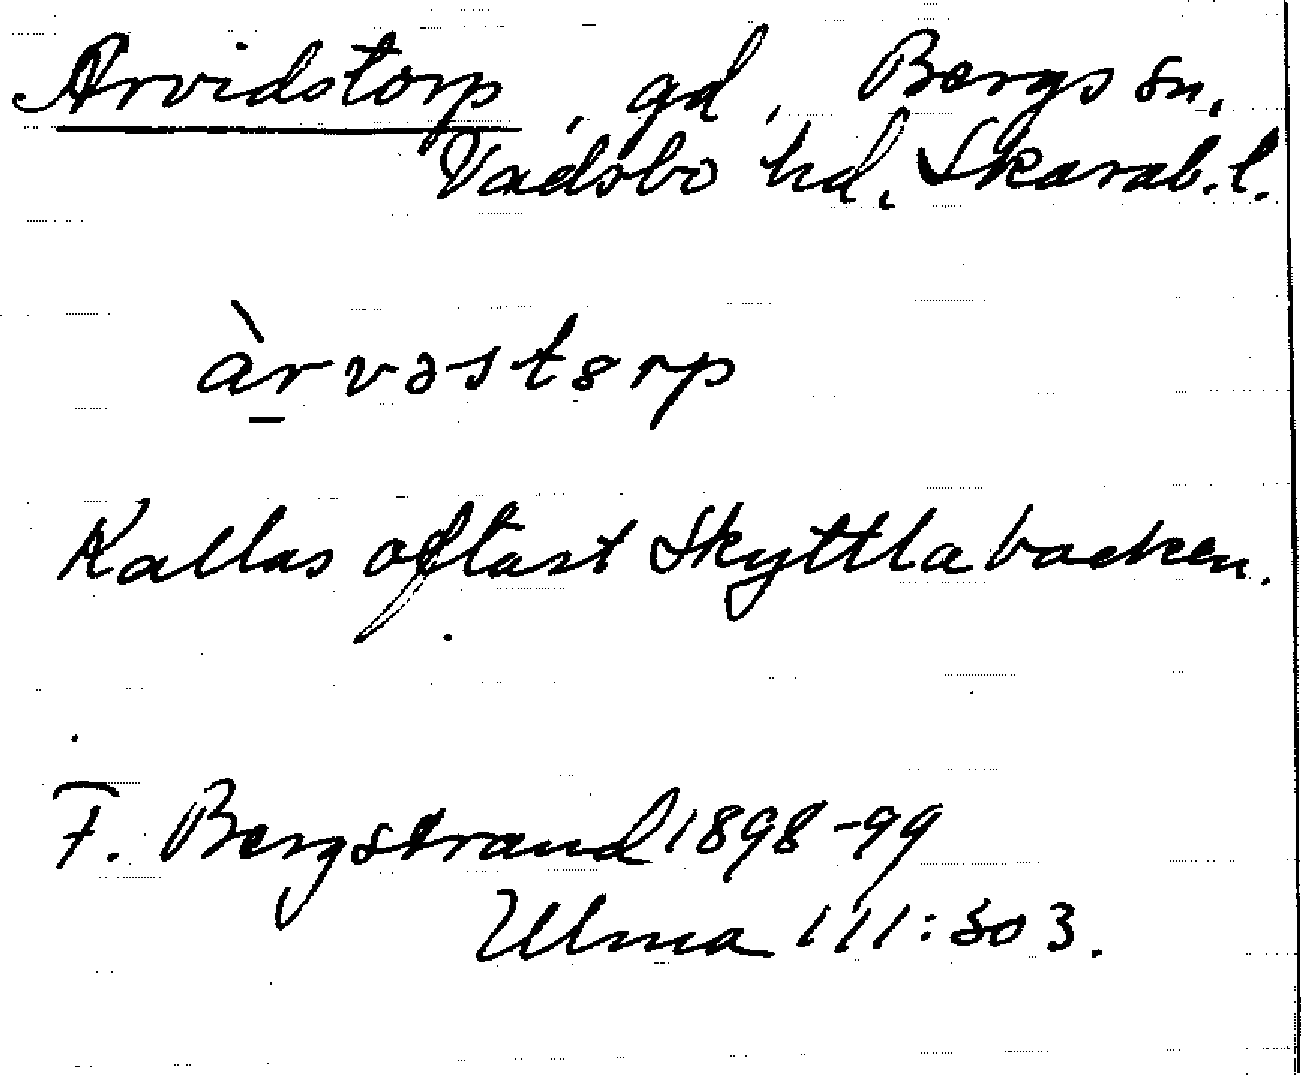 Arvidstorp, gd, Bergs sn,
Vadsbo hd, Skarab. l.
àrvəstɵrp
Kallas oftast Skyttlabacken.
F. Bergstrand 1898-99
Ulma 111:303.